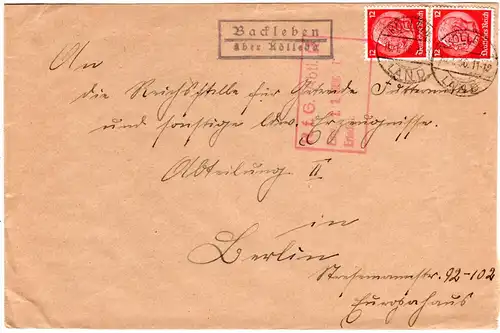 Backleben
über Kölleda
12 Deutsches Reich
12 Deutsches Reich
LAND
LAND
R.f.G.
An
die Reichsstelle für Getreide Futtermittel
und sonstige ldw. Erzeugnisse.
Abteilung II
in
Berlin
Stresemannstr. 92-102
Europahaus